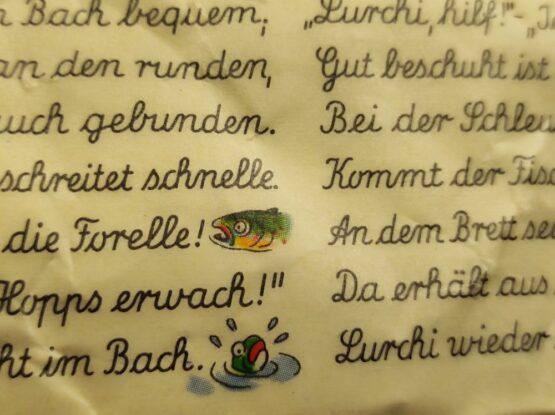 Bach bequem;
an den runden,
gebunden.
schreitet schnelle.
die Forelle!
Hopps erwach!"
im Bach.
„Lurchi, hilf!"-
Gut beschuht ist
Bei der
Kommt der
An dem Brett
Da erhält aus
Lurchi wieder